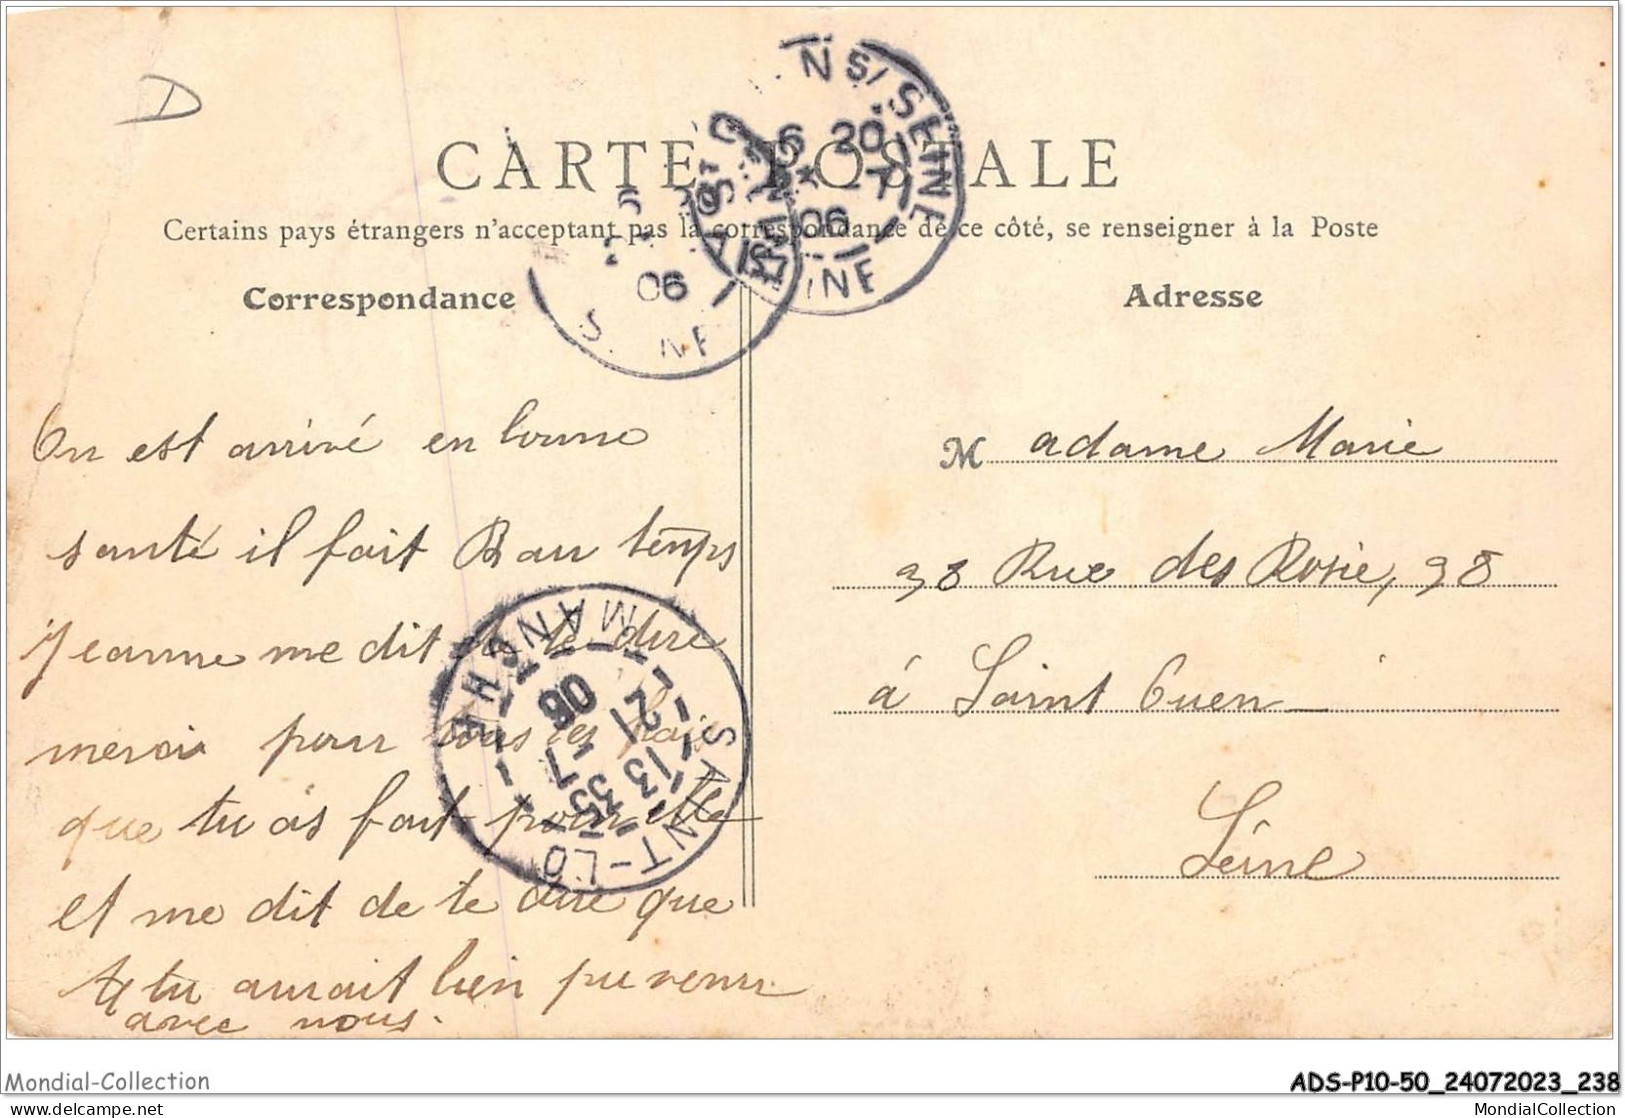 D
CARTE POSTALE
Certains pays étrangers n'acceptent pas la correspondance de ce côté, se renseigner à la Poste
Correspondance
Adresse
On est arrivé en bonne
santé il fait Bau temps
Jeanne me dit de te dire
merci pour tous les
que tu as fait pour elle
et me dit de te dire que
tu aurait bien pu venir
avec nous.
M adame Marie
38 Rue des Rosie, 38
á Saint Ouen
Seine
NS/SEINE
6 20
7
06
INE
06
S NE
SAINT-LO
MANCHE
13 35
21 7
06
Mondial-Collection
ADS-P10-50_24072023_238
www.delcampe.net
MondialCollection